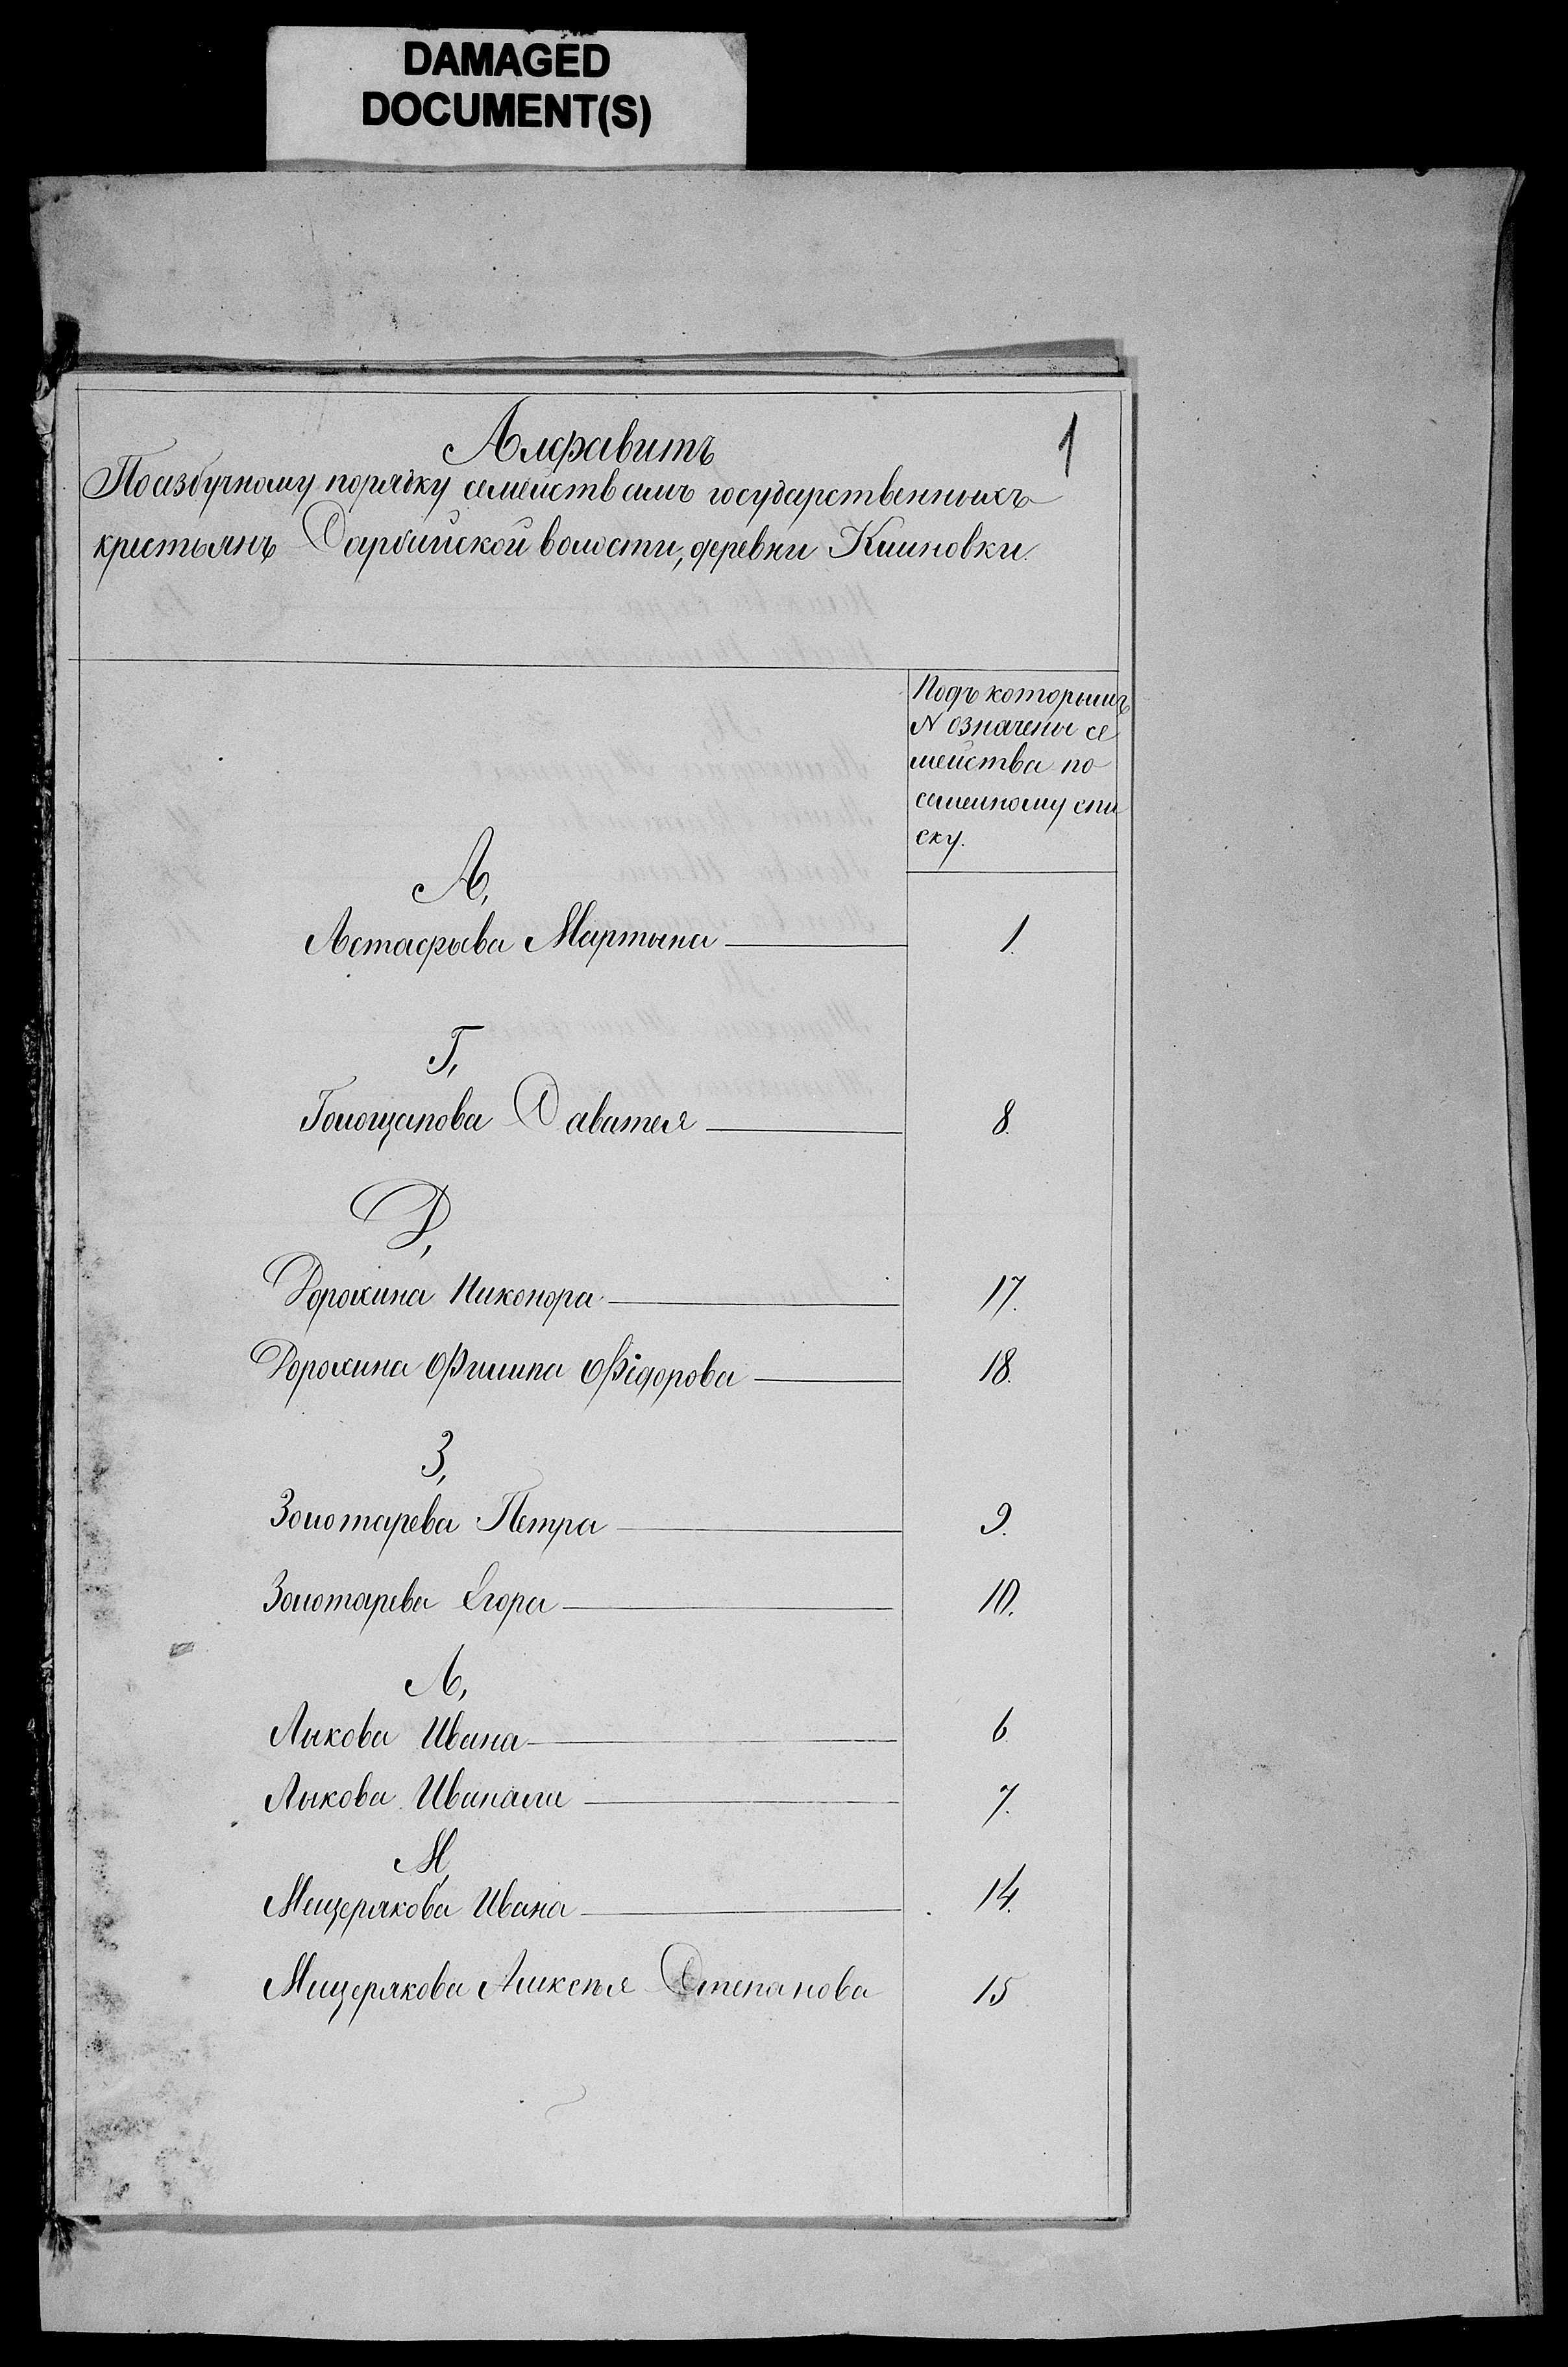 DAMAGED
DOCUMENT(S)
1
Алфавитъ
По азбучному порядку семействамъ государственныхъ
крестьянъ Сарбайской волости, деревни Климовки.
Подъ которымъ
N означены се
мейства по
семейному спи
ску.
А,
Астафьева Мартына 1.
Г,
Голощапова Саватея 8.
Д,
Дорохина Никонора 17.
Дорохина Филипа Фёдорова 18.
З,
Золотарева Петра 9.
Золотарева Егора 10.
Л,
Лыкова Ивана 6
Лыкова 7.
М,
Мещерякова Ивана 14.
Мещерякова Алексея Степанова 15